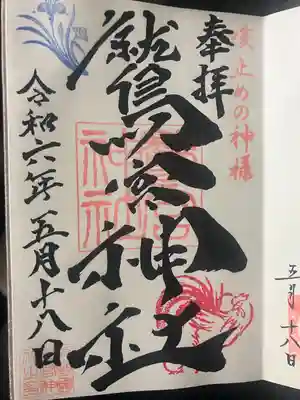 五月十八日
咳止めの神様
奉拝
鷲宮神社
令和六年五月十八日